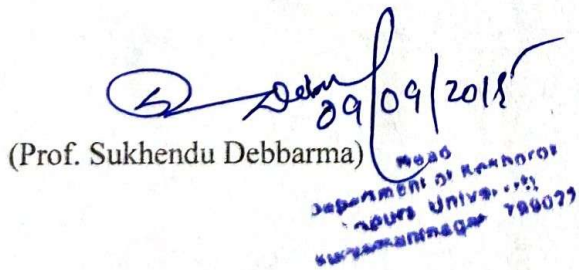 09/09/2015
(Prof. Sukhendu Debbarma)
Head
Department of Kokborok
Tripura University
Suryamaninagar 799022